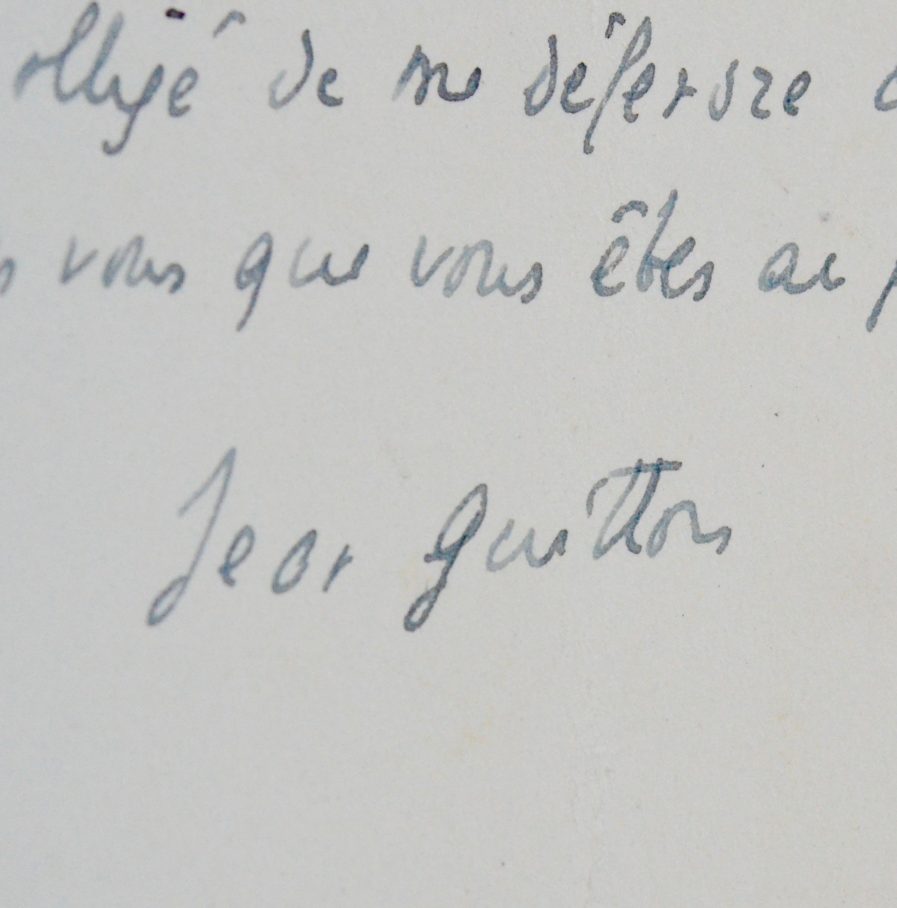 obligé de me défendre
vous que vous êtes au
Jean Guitton